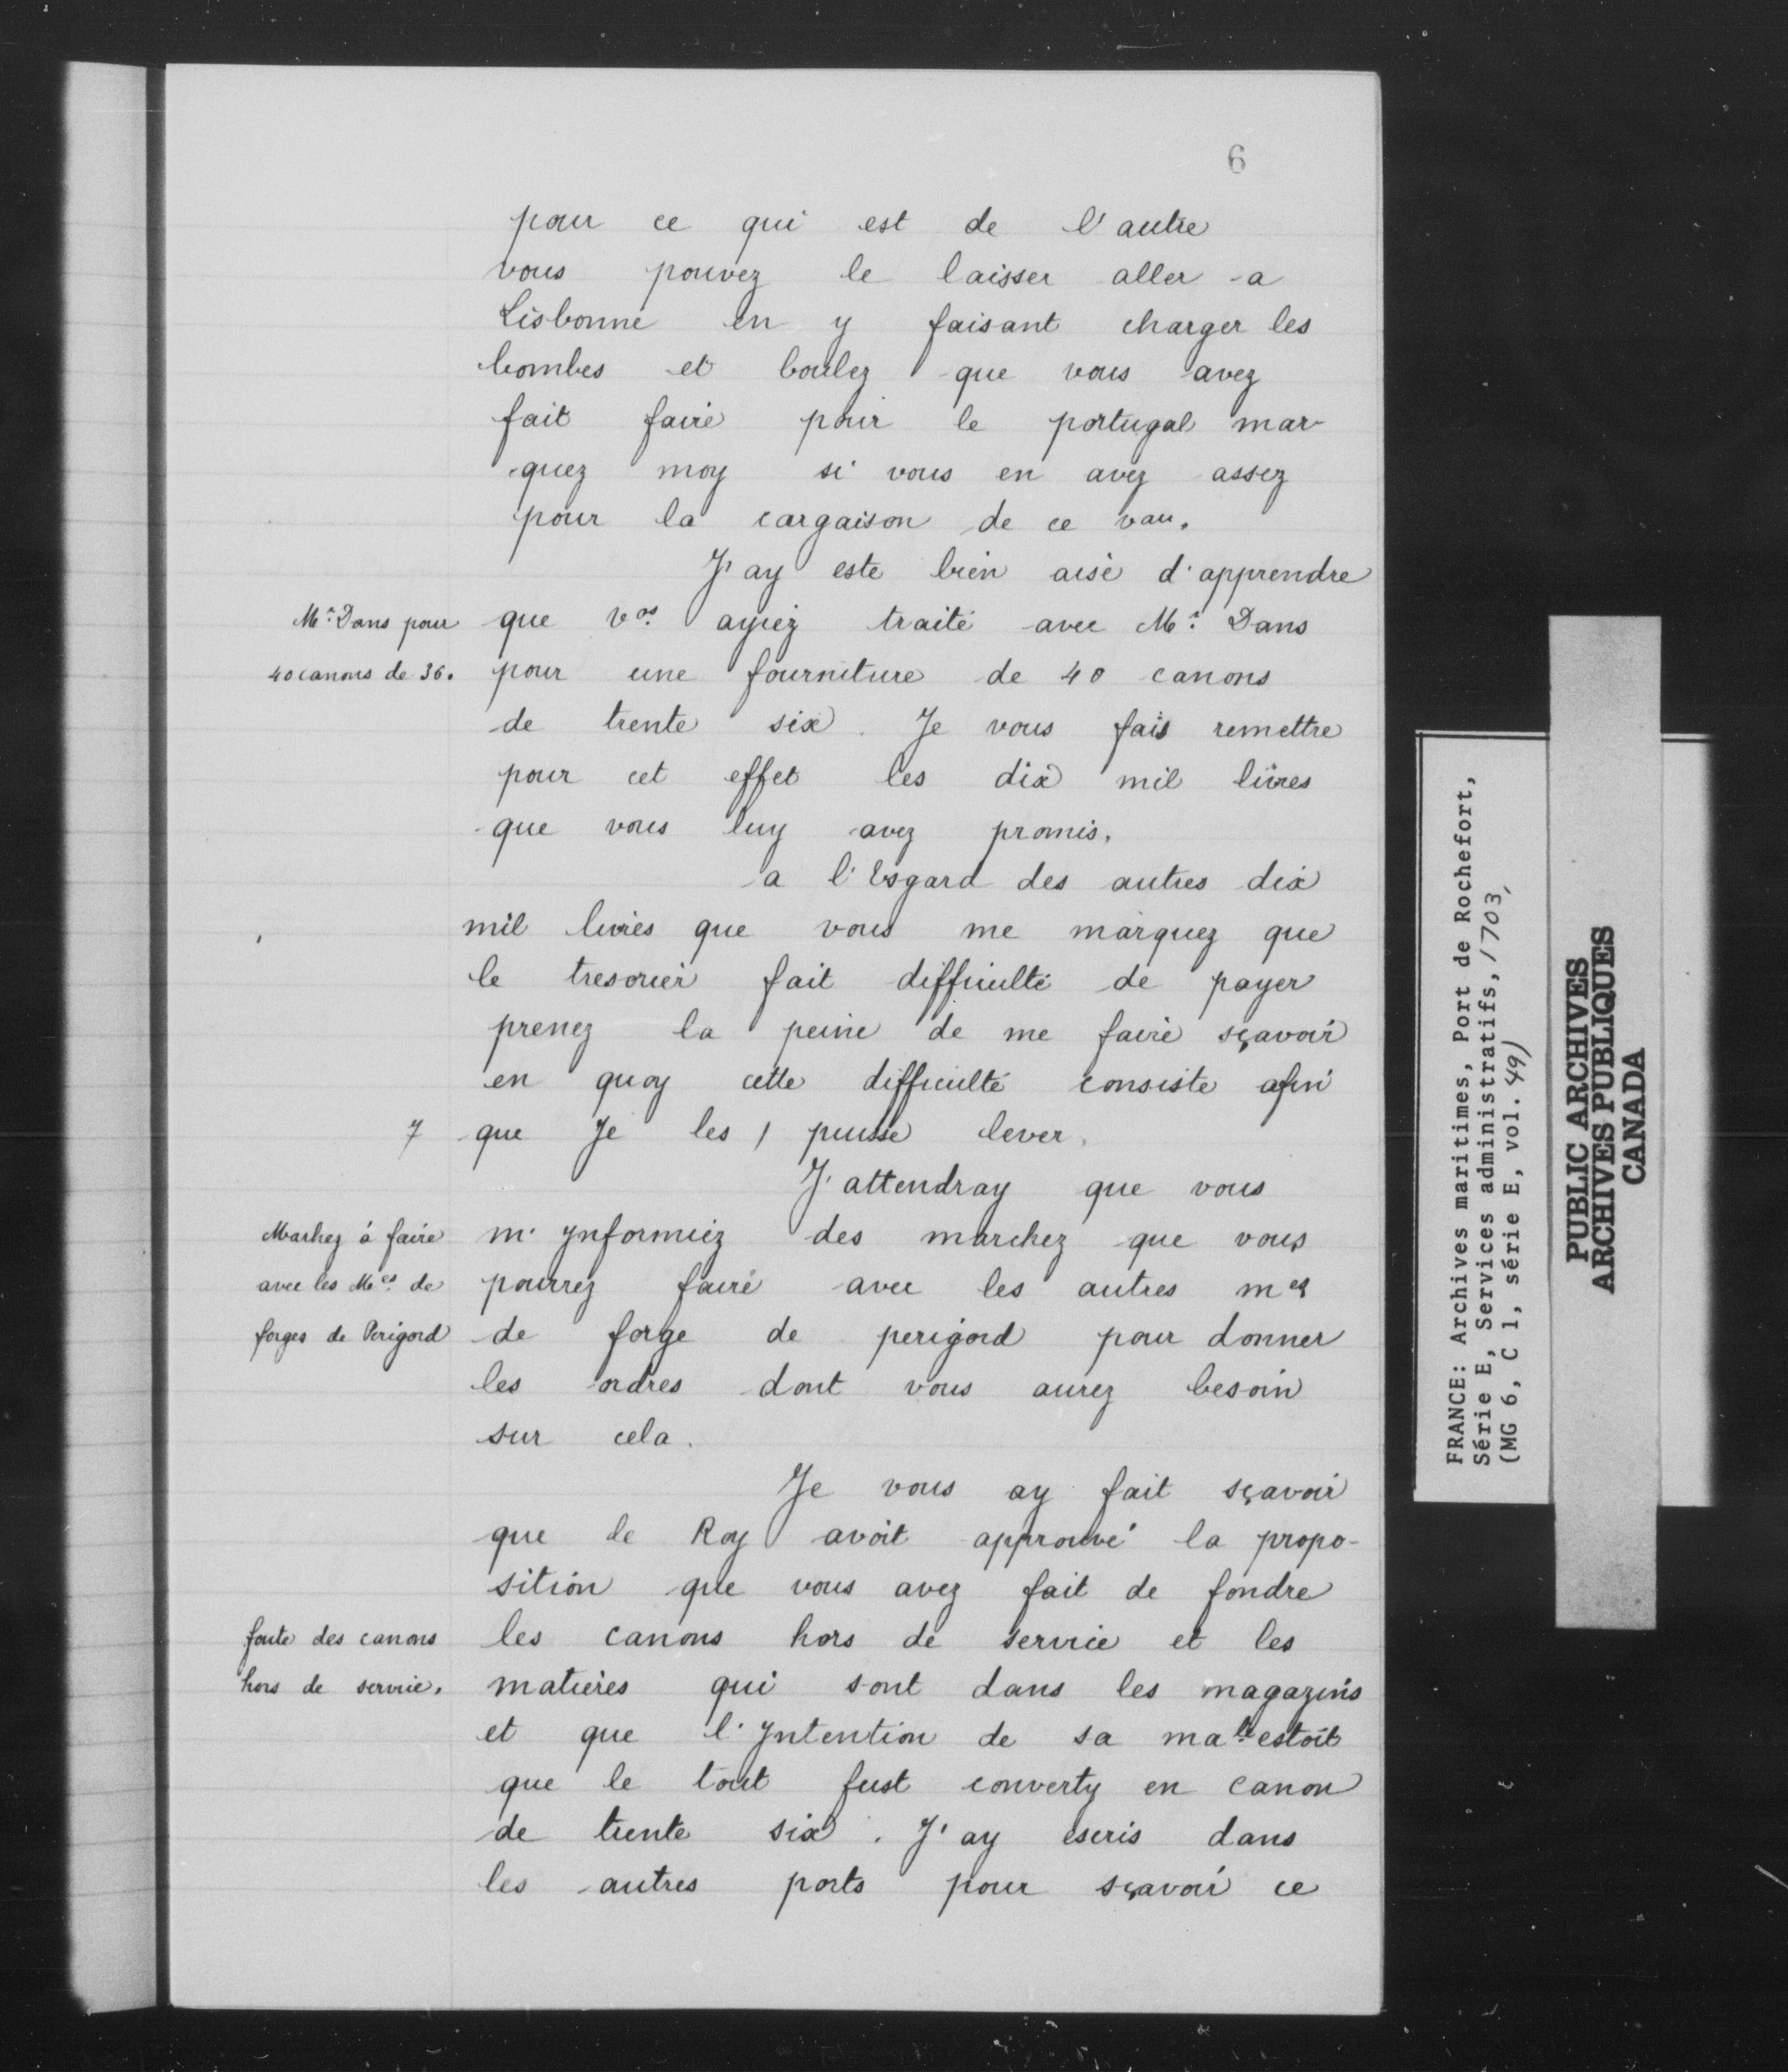 6
pour ce qui est de l'autre
vous pouvez le laisser aller a
Lisbonne en y faisant charger les
bombes et boulez que vous avez
fait faire pour le portugal mar-
quez moy si vous en avez assez
pour la cargaison de ce vau.
J'ay este bien aise d'apprendre
Mr. Dans pour
40 canons de 36.
que vos. ayiez traité avec Mr. Dans
pour une fourniture de 40 canons
de trente six. Je vous fais remettre
pour cet effet les dix mil livres
que vous luy avez promis.
a l'Esgard des autres dix
mil livres que vous me marquez que
le tresorier fait difficulté de payer
prenez la peine de me faire sçavoir
en quoy cette difficulté consiste afin
7
que Je les / puisse lever.
J'attendray que vous
Marhez à faire
avec les Mes. de
forges de Perigord
m'ynformiez des marchez que vous
pourrez faire avec les autres mes
de forge de perigord pour donner
les ordres dont vous aurez besoin
sur cela.
Je vous ay fait sçavoir
que le Roy avoit approuvé la propo-
sition que vous avez fait de fondre
fonte des canons
hors de service.
les canons hors de service et les
matieres qui sont dans les magazins
et que l'Yntention de sa mate. estoit
que le tout fust converty en canon
de trente six. J'ay escris dans
les autres ports pour sçavoir ce
FRANCE: Archives maritimes, Port de Rochefort,
Série E, Services administratifs, 1703,
(MG 6, C 1, série E, vol. 49)
PUBLIC ARCHIVES
ARCHIVES PUBLIQUES
CANADA